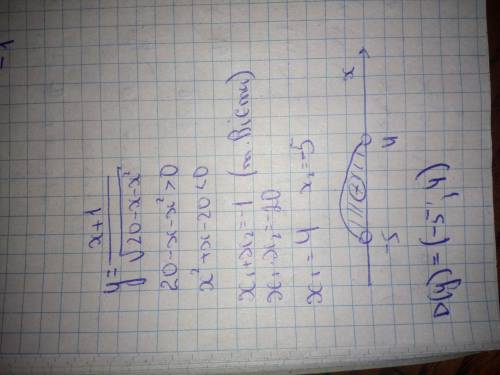 -1
y = \frac{x+1}{\sqrt{20-x-x²}}
20-x-x²>0
x²+x-20<0
x₁+x₂=-1 (т. Вієти)
x₁·x₂=-20
x₁=4 x₂=-5
+ x
-5 4
D(y)=(-5; 4)